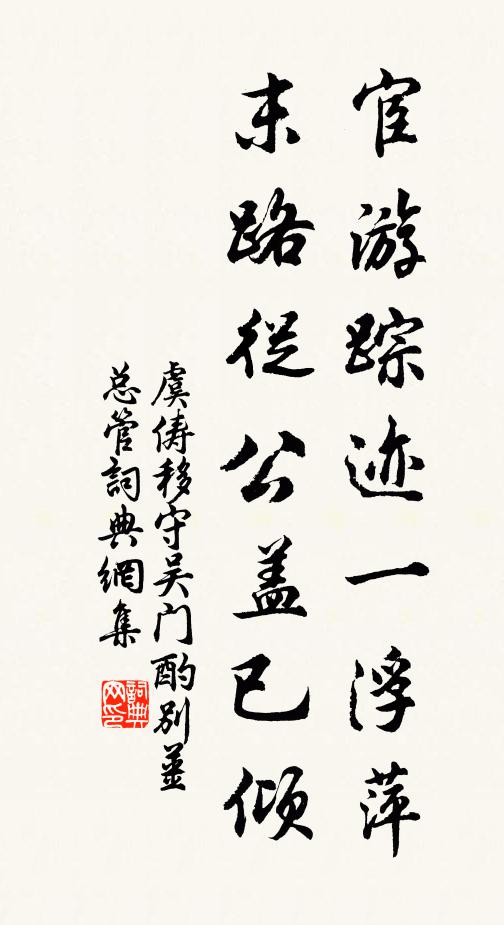 宦游踪迹一浮萍
末路從公盖已倾
虞俦移守吴门酌别姜
总管詞典網集
詞典网印